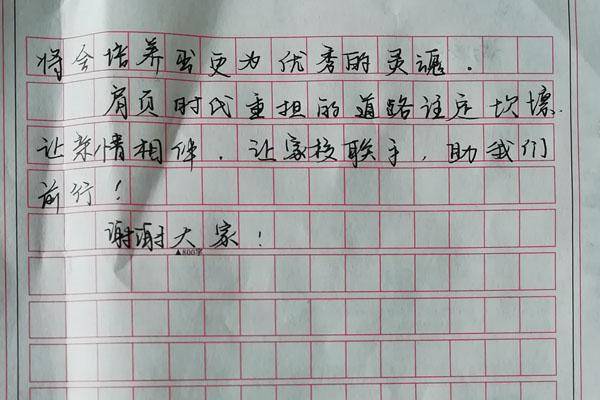 将会培养出更为优秀的灵魂.
肩负时代重担的道路注定坎壈.
让亲情相伴.让家校联手,助我们
前行!
谢谢大家!
▲800字